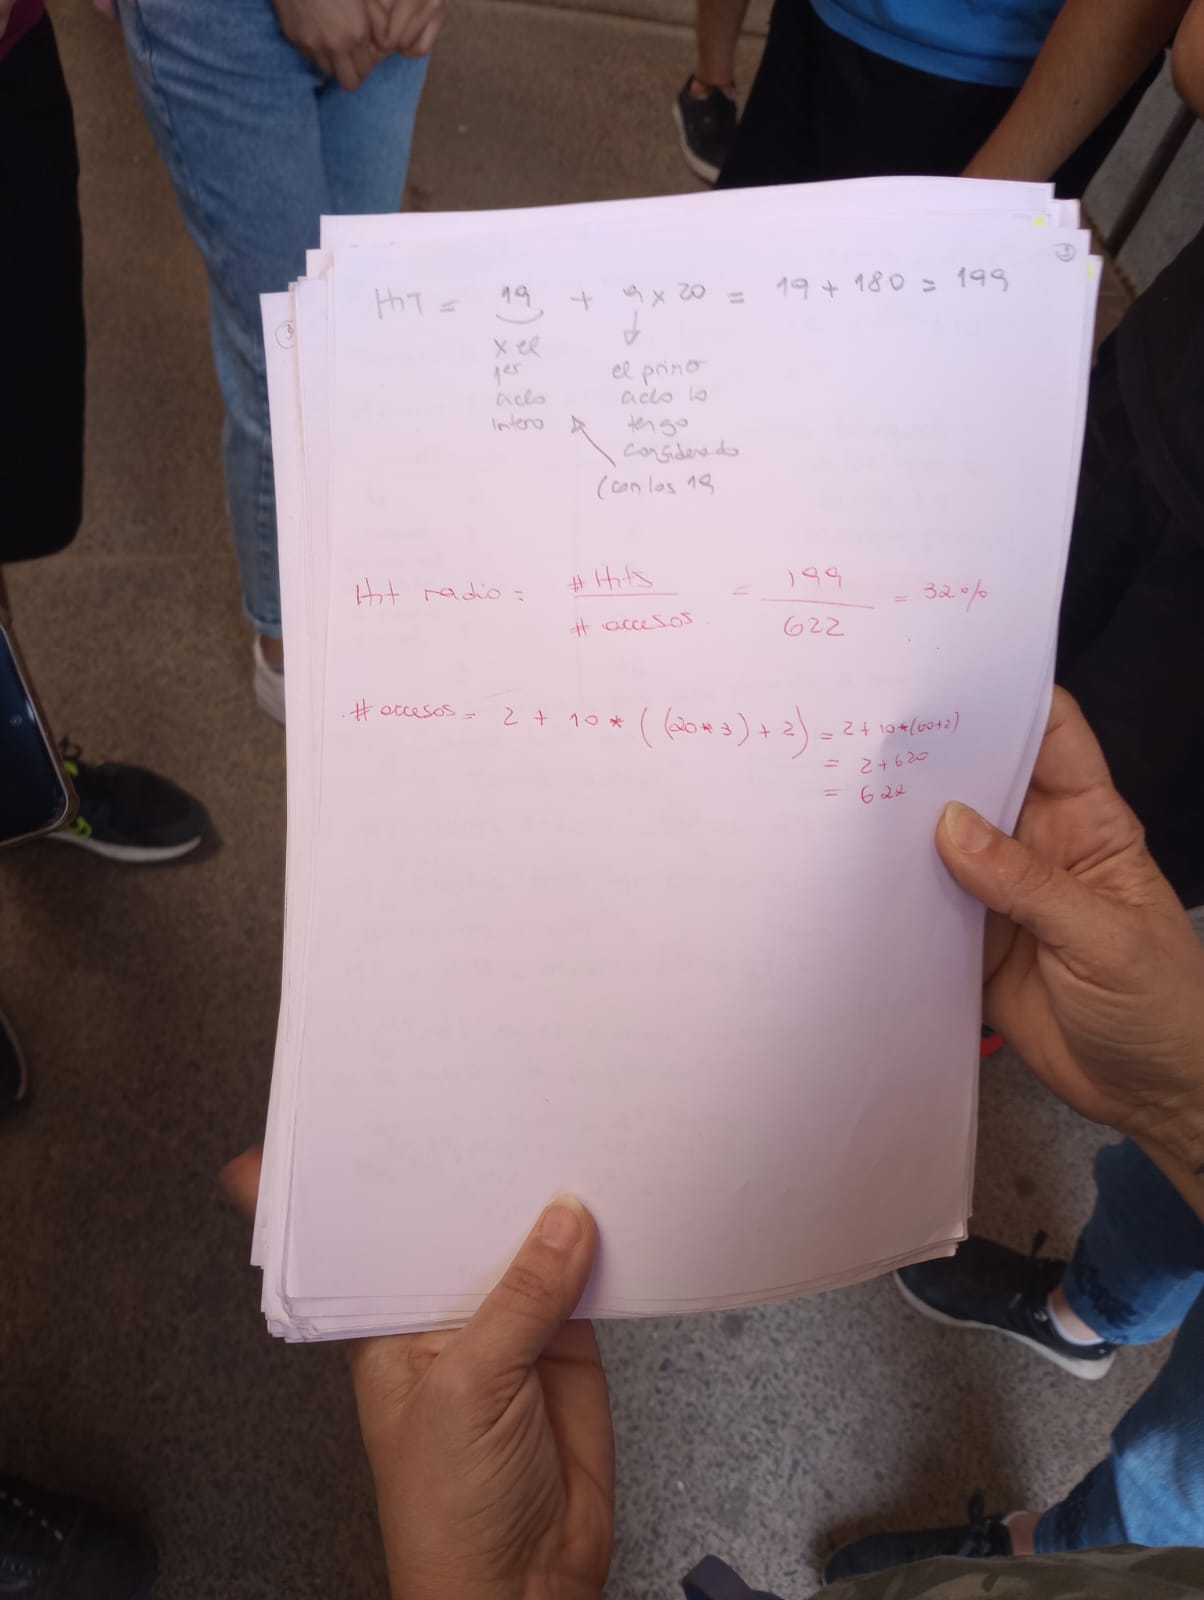 HIT = 19 + 9 x 20 = 19 + 180 = 199
x el
1er
ciclo
intero
el primer
ciclo lo
tengo
considerado
(con los 19
Hit radio = # Hits / # accesos = 199 / 622 = 32%
# accesos = 2 + 10 * ((20*3) + 2) = 2 + 10*(60+2)
= 2 + 620
= 622